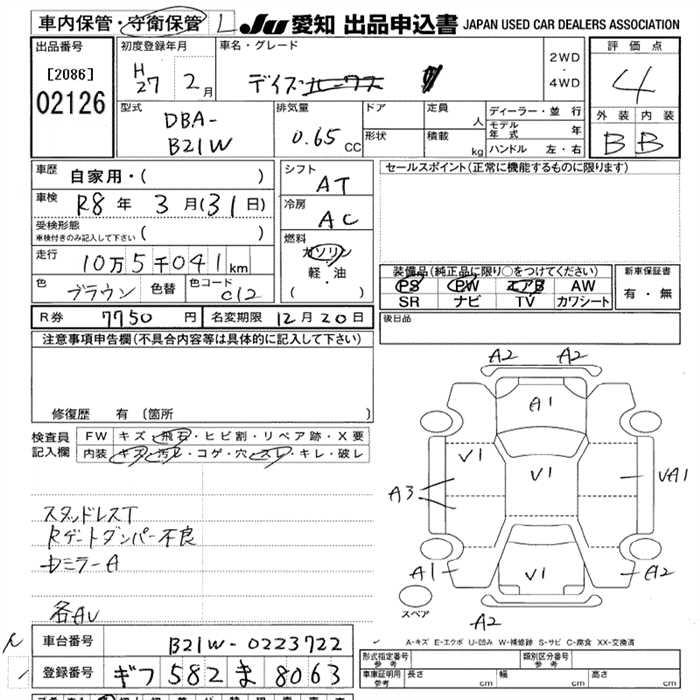 車内保管・守衛保管 L JU 愛知 出品申込書 JAPAN USED CAR DEALERS ASSOCIATION
出品番号
[2086]
02126
初度登録年月
H27 2月
車名・グレード
デイズ
2WD・4WD
評価点
4
外装 内装
B B
型式
DBA-
B21W
排気量
0.65 CC
ドア
形状
定員 人
積載 kg
ディーラー・並行
モデル年式 年
ハンドル 左・右
車歴
自家用・( )
車検 R8年 3月(31日)
受検形態
車検付きのみ記入して下さい ( )
走行 10万5千041km
色 ブラウン 色替 色コード C12
シフト AT
冷房 AC
燃料
ガソリン
軽・油
( )
セールスポイント(正常に機能するものに限ります)
装備品(純正品に限り○をつけてください)
PS PW エアB AW
SR ナビ TV カワシート
新車保証書
有・無
R券 7750円 名変期限 12月20日
後日品
注意事項申告欄(不具合内容等は具体的に記入して下さい)
修復歴 有 (箇所 )
検査員記入欄
FW キズ・飛石・ヒビ割・リペア跡・X要
内装 キズ・汚レ・コゲ・穴・スレ・キレ・破レ
スタッドレスT
Rゲートダンパー不良
ロミラーA
各AU
A2 A2
A1
V1 V1 VA1
A3
A1 V1 A2
A2
スペア
A-キズ E-エクボ U-凹み W-補修跡 S-サビ C-腐食 XX-交換済
車台番号 B21W-0223722
登録番号 ギフ 582 ま 8063
形式指定番号 参考
類別区分番号 参考
車庫証明用 参考 長さ cm 幅 cm 高さ cm